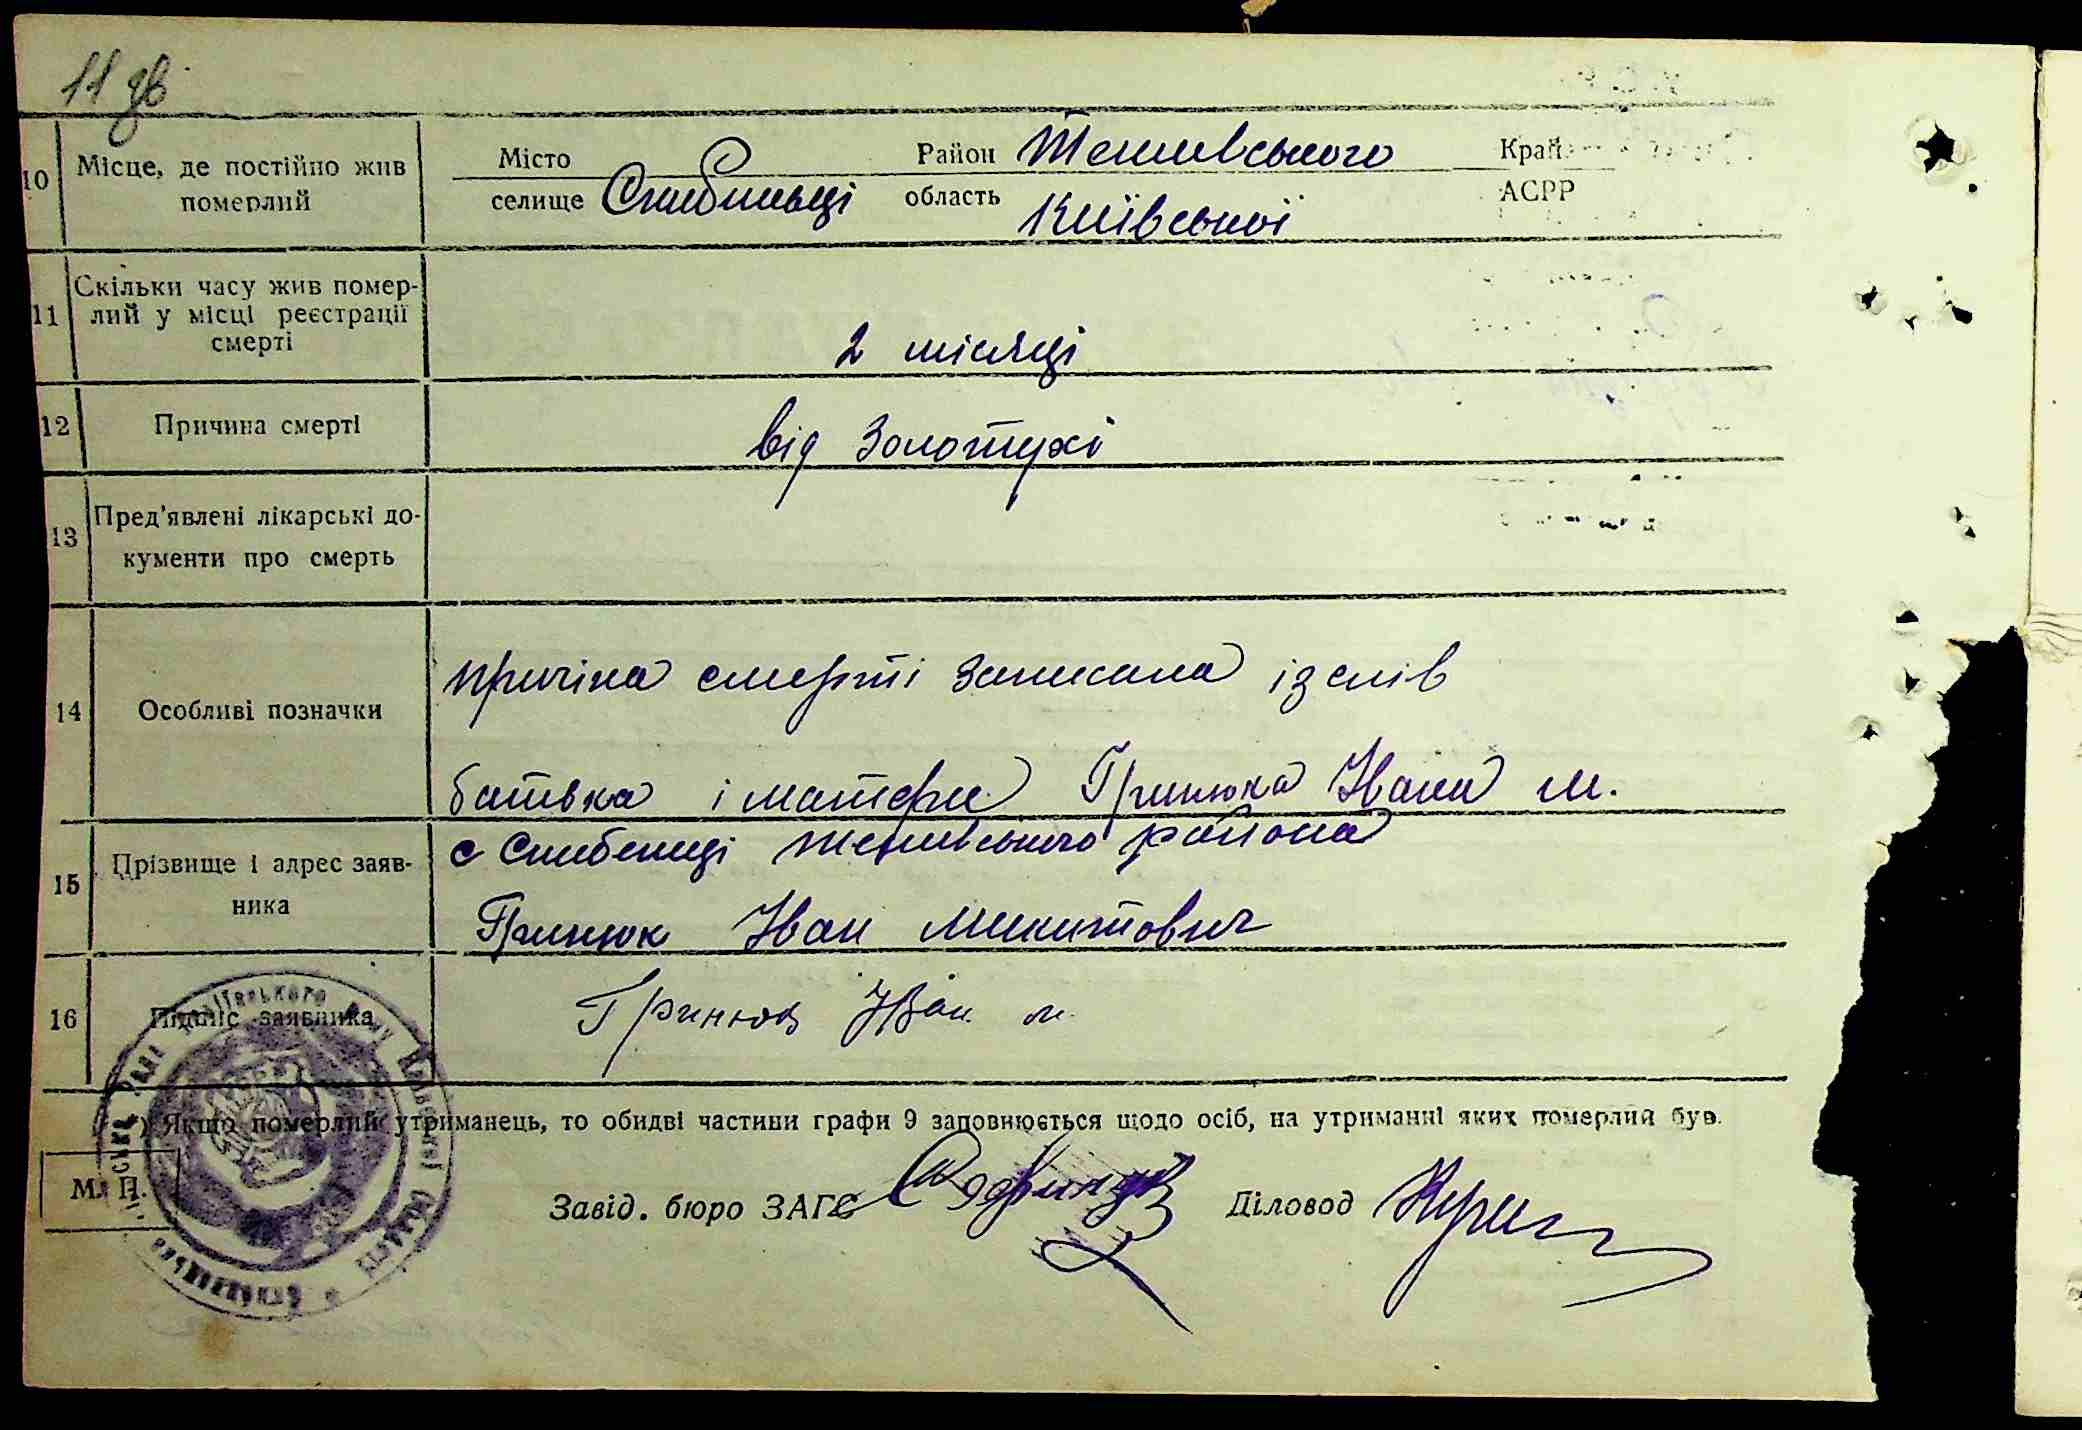 11 зв
10 Місце, де постійно жив померлий
Місто Район Тетиївського Край
селище Стибинці область Київської АСРР
11 Скільки часу жив помер-
лий у місці реєстрації
смерті
2 місяці
12 Причина смерті
від Золотухі
13 Пред'явлені лікарські до-
кументи про смерть
14 Особливі позначки
причіна смерті записана із слів
батька і матери Гринюка Івана М.
15 Прізвище і адрес заяв-
ника
с району
Гринюк Іван Микитович
16 Підпис заявника
Гринюк Іван М.
) Якщо померлий утриманець, то обидві частини графи 9 заповнюється щодо осіб, на утриманні яких померлий був.
М. П.
Завід. бюро ЗАГС Діловод